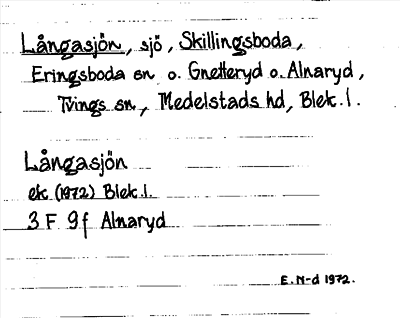 Långasjön, sjö, Skillingsboda,
Eringsboda sn o. Gnetteryd o. Alnaryd,
Tvings sn, Medelstads hd, Blek. l.
Långasjön
ek (1972) Blek. l.
3 F 9 f Alnaryd
E. N-d 1972.